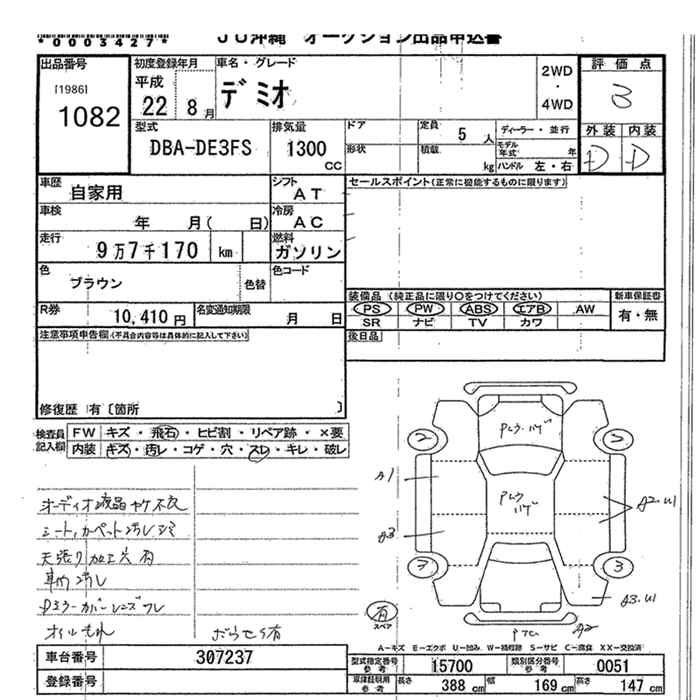 *0003427*
JU沖縄 オークション出品申込書
出品番号
[1986]
1082
初度登録年月
平成
22 8月
車名・グレード
デミオ
2WD
・
4WD
評価点
3
外装 内装
D D
型式
DBA-DE3FS
排気量
1300
CC
ドア
形状
定員 5人
積載 kg
ディーラー・並行
モデル年式 年
ハンドル 左・右
車歴 自家用
シフト AT
車検 年 月( 日)
冷房 AC
走行 9万7千170 km
燃料 ガソリン
色 ブラウン
色替
色コード
R券 10,410円
名変通知期限 月 日
セールスポイント(正常に機能するものに限ります)
装備品(純正品に限り○をつけてください)
新車保証書
PS PW ABS エアB AW
有・無
SR ナビ TV カワ
後日品
注意事項申告欄(不具合内容等は具体的に記入して下さい)
修復歴 有〔箇所 〕
検査員記入欄
FW キズ・飛石・ヒビ割・リペア跡・×要
内装 キズ・汚レ・コゲ・穴・スレ・キレ・破レ
オーディオ液晶ヤケ
シート,カーペット汚レ
天張り加工穴有
車内汚レ
オイルもれ
A1
A3
A2.U1
A3.U1
A2
2
3
7
3
有
スペア
A-キズ E-エクボ U-凹み W-補修跡 S-サビ C-腐食 XX-交換済
車台番号 307237
登録番号
型式指定番号 参考 15700
類別区分番号 参考 0051
車庫証明用 参考 長さ 388cm 幅 169cm 高さ 147cm